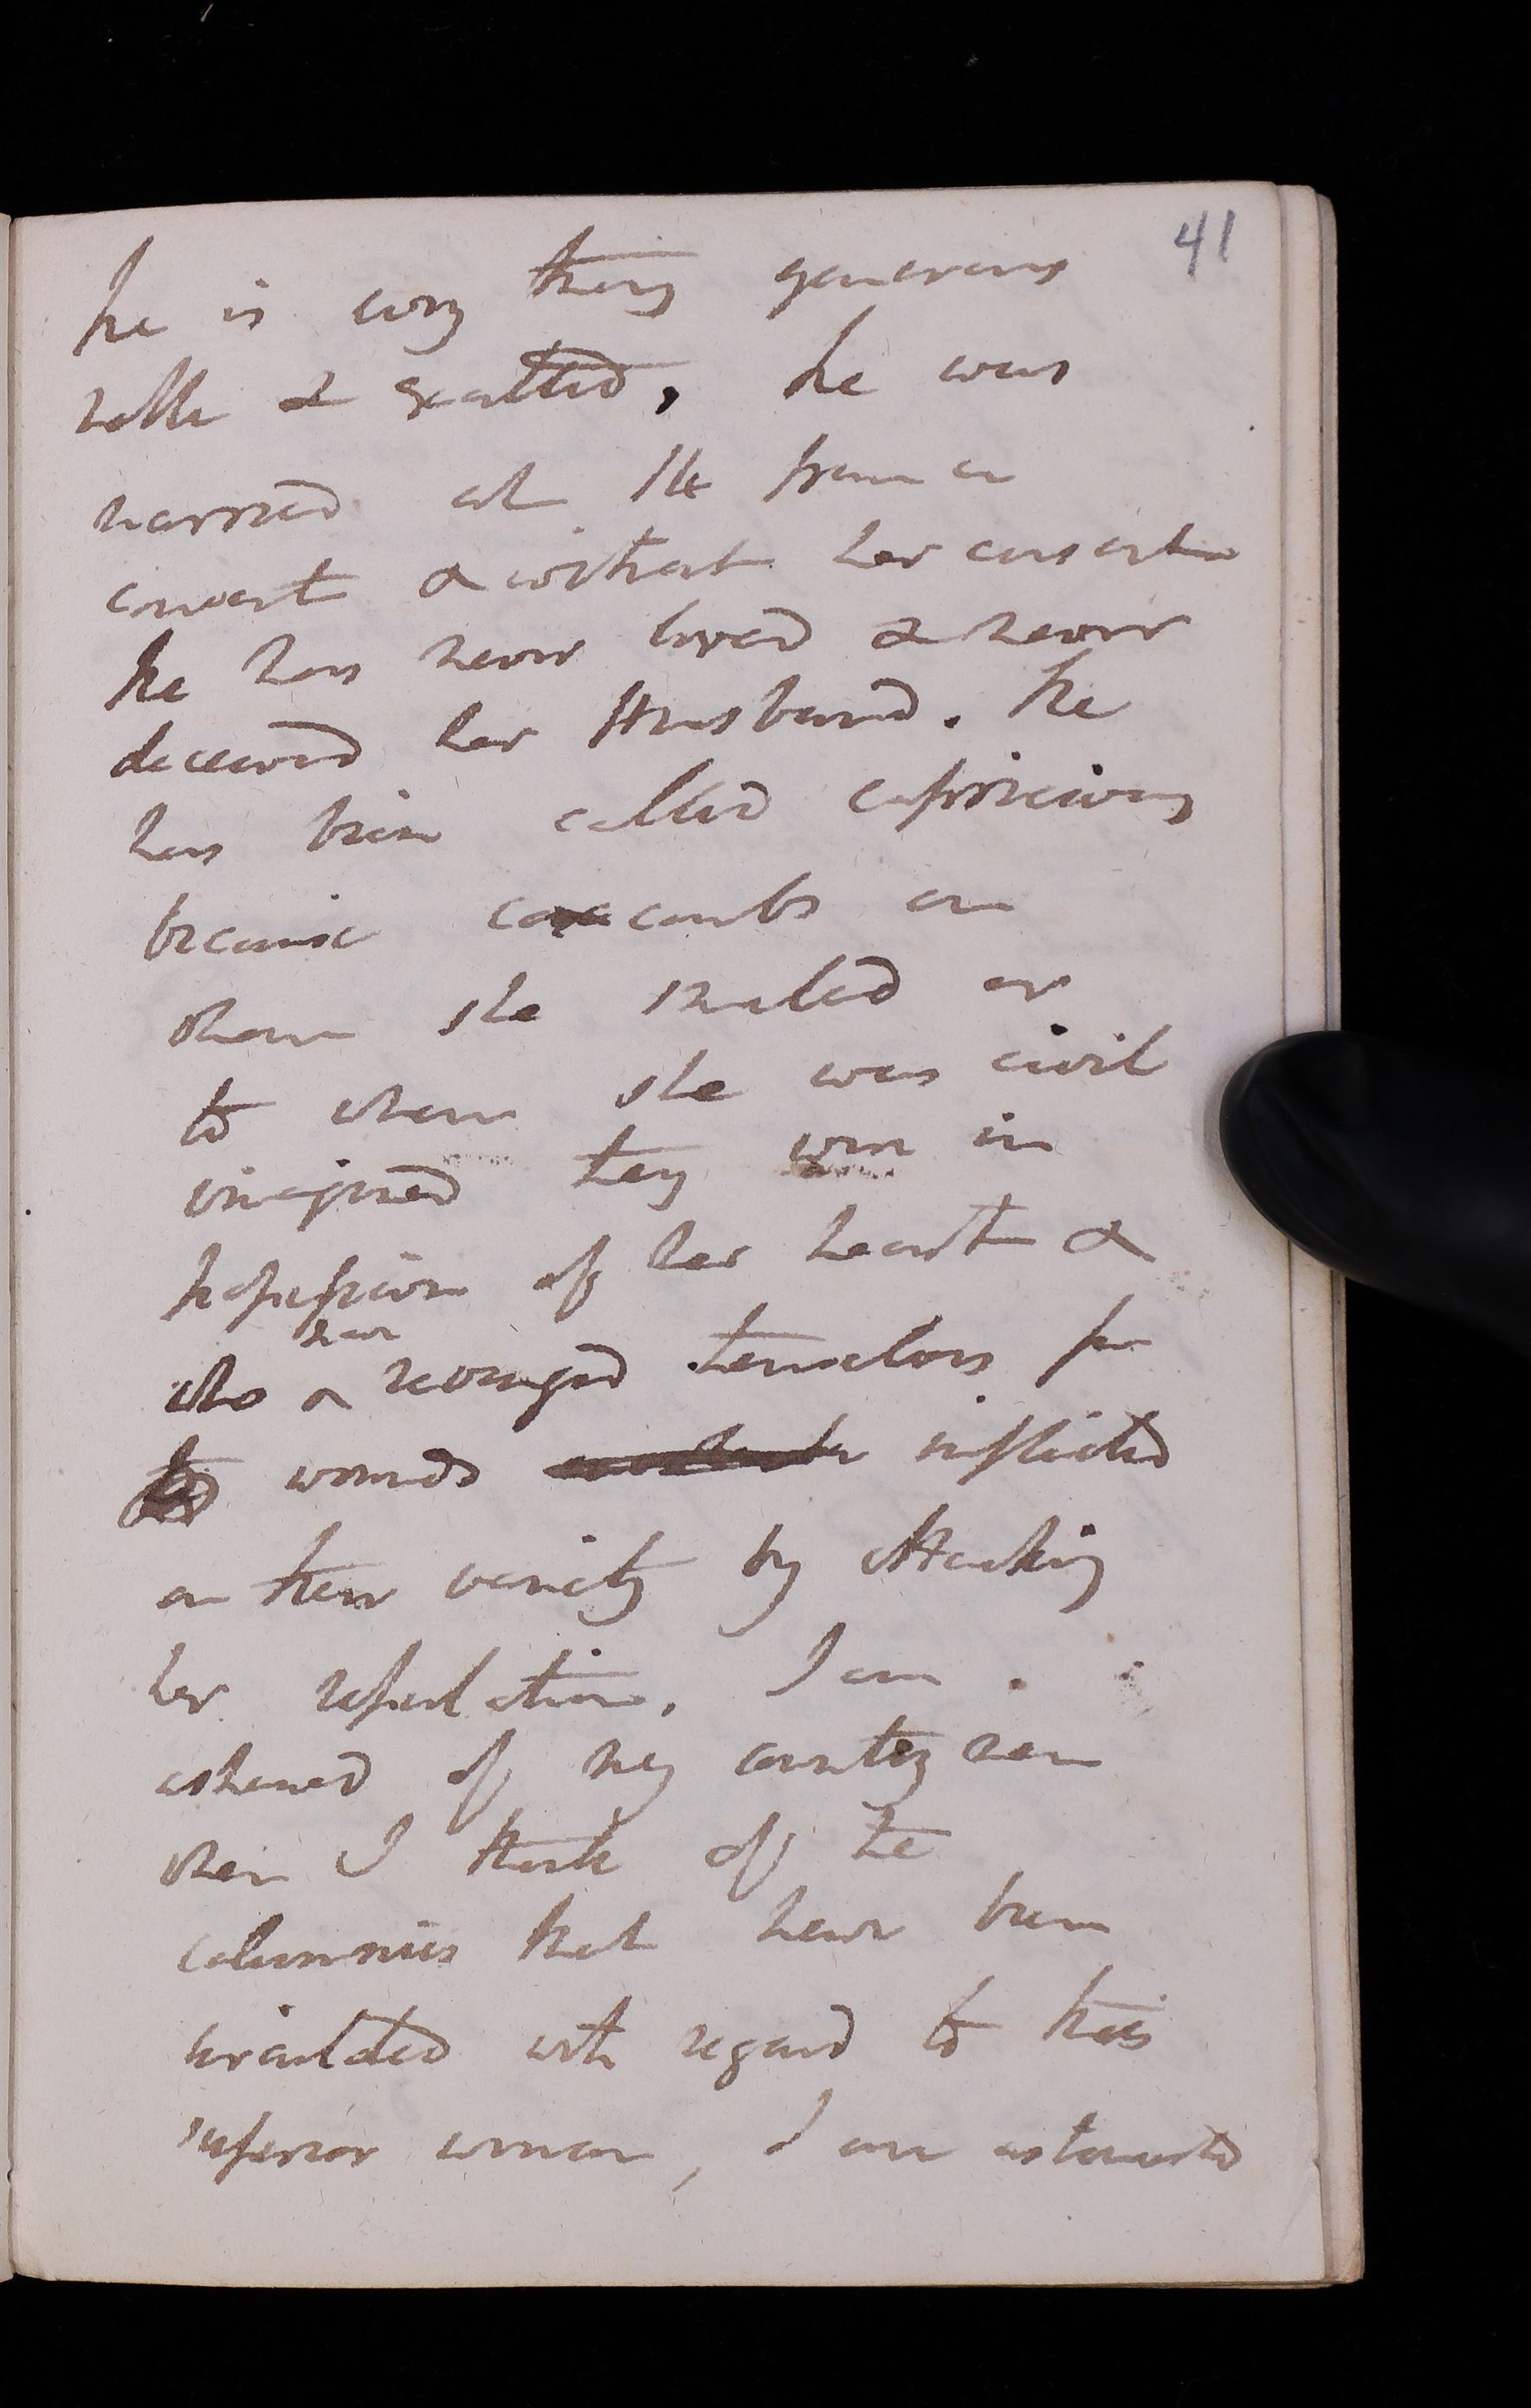 41
he is every thing generous
noble & exalted, he was
married at 14 from a
convent & without her consent
he has never loved & never
deceived her Husband. he
has been called capricious
because coxcombs on
whom she smiled or
to whom she was civil
imagined they were in
possession of her heart &
have
who & revenged themselves for
wounds inflicted
on their vanity by attacking
her reputation. I am
ashamed of my country men
when I think of the
calumnies that have been
circulated with regard to this
superior woman, I am astonished